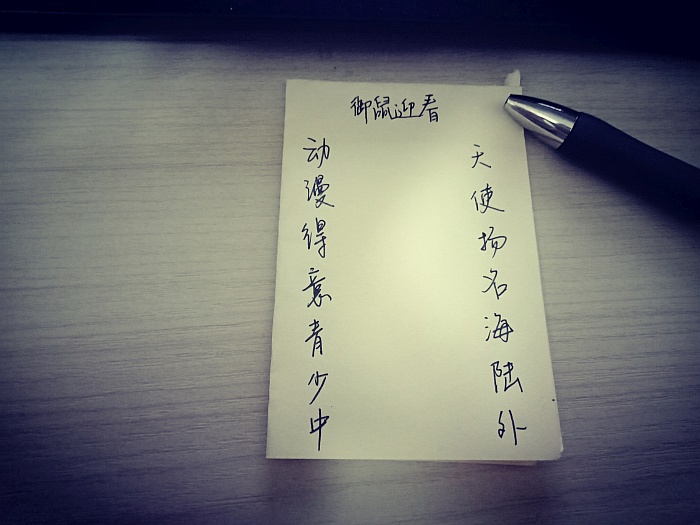 御鼠迎看
天使扬名海陆外
动漫得意青少中